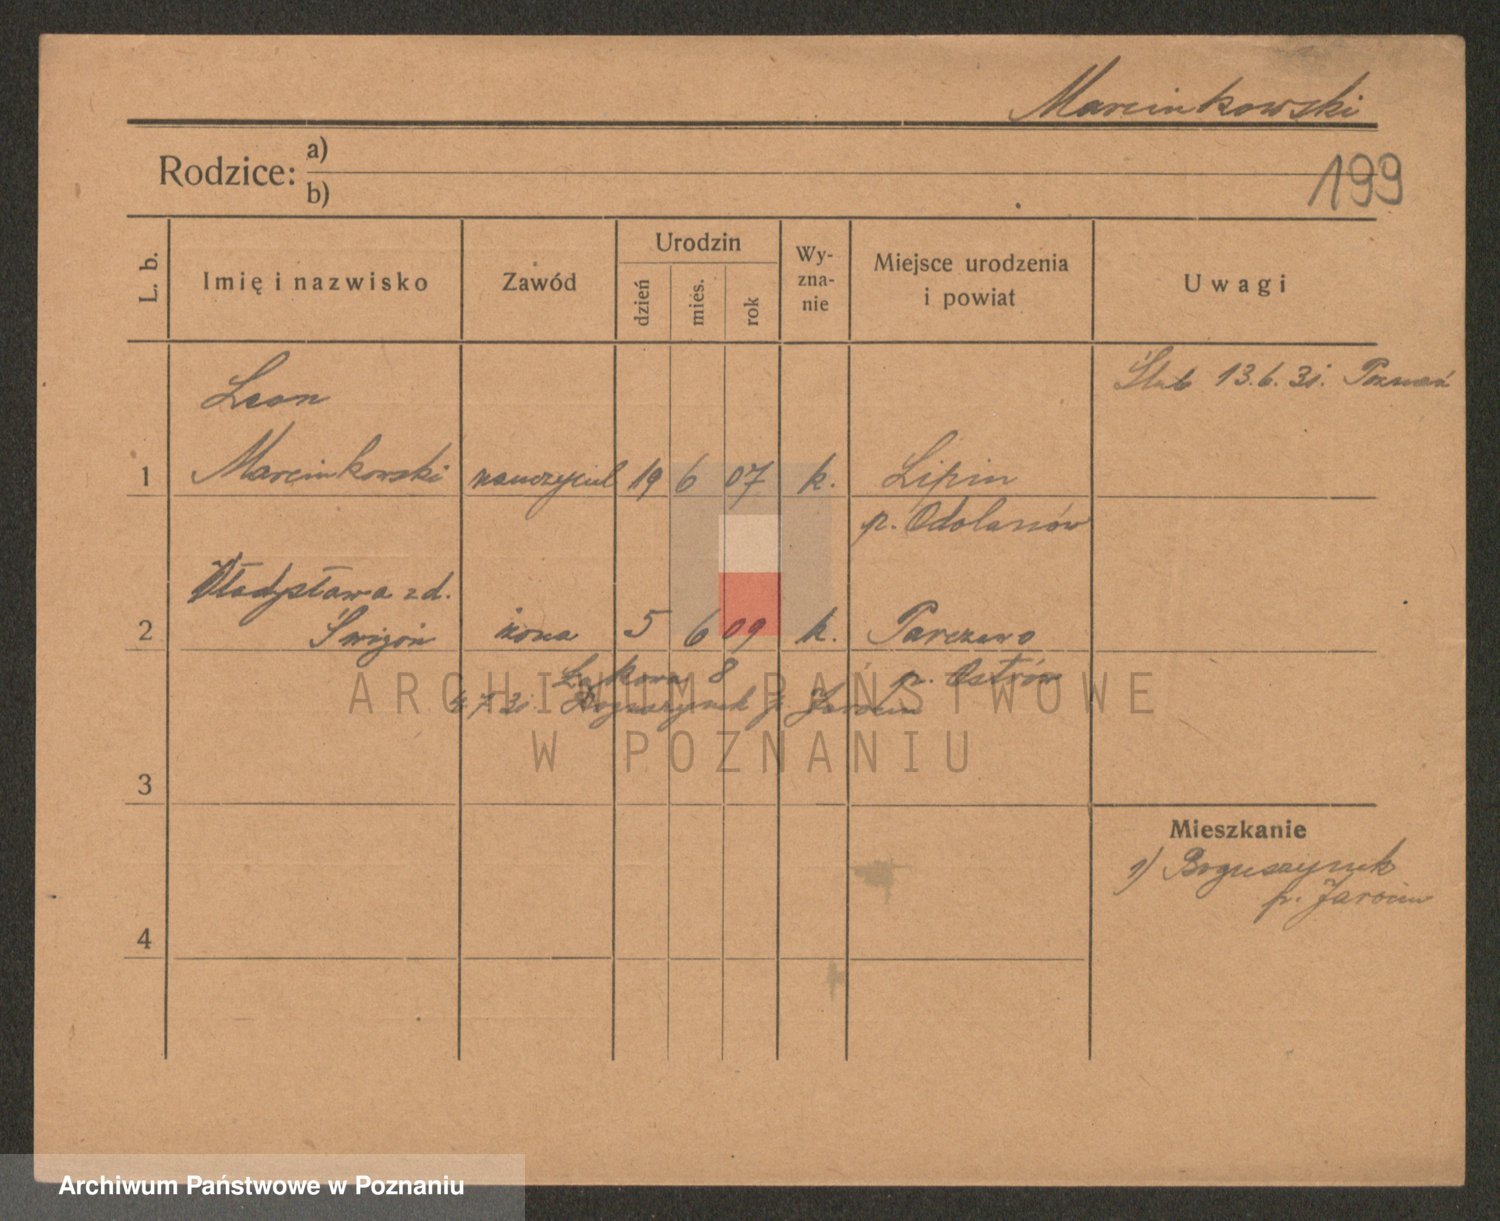 Marcinkowski
Rodzice: a)
b)
199
L. b.
Imię i nazwisko
Zawód
Urodzin
dzień
mies.
rok
Wy-
zna-
nie
Miejsce urodzenia
i powiat
Uwagi
Ślub 13.6.31. Poznań
Leon
1 Marcinkowski nauczyciel 19 6 07 k. Lipin
p. Odolanów
Władysława z d.
2 Świgoń żona 5 6 09 k. Parczewo
p. Ostrów
Łąkowa 8
7 31 Boguszynek p. Jarocin
3
Mieszkanie
1) Boguszynek
p. Jarocin
4
ARCHIWUM PAŃSTWOWE
W POZNANIU
Archiwum Państwowe w Poznaniu